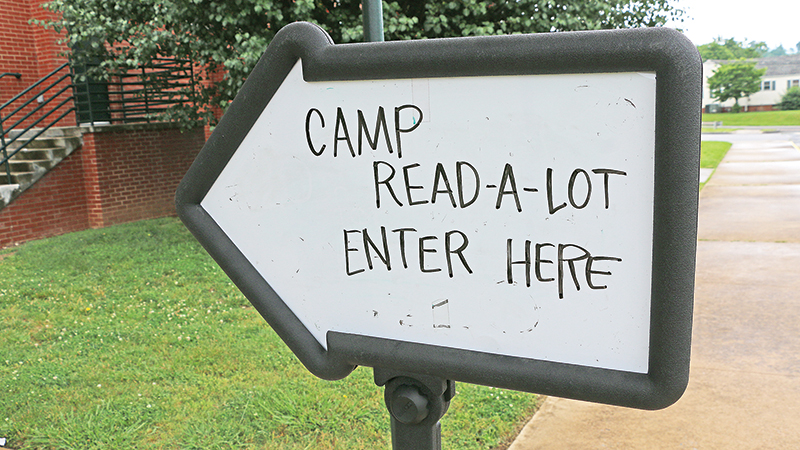 CAMP
READ-A-LOT
ENTER HERE